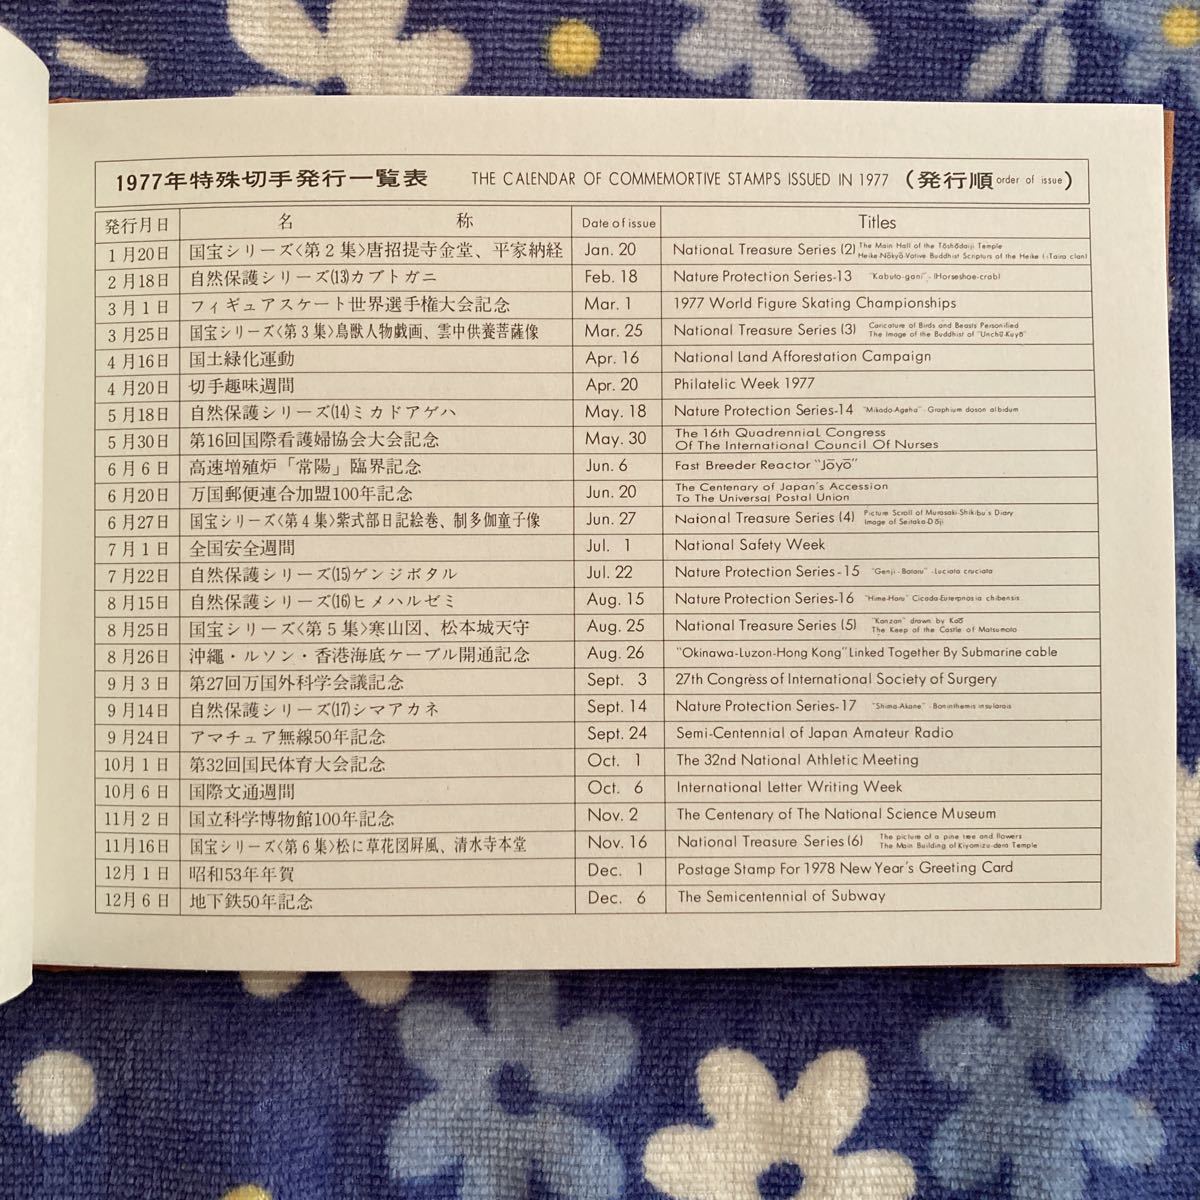 1977年特殊切手発行一覧表 THE CALENDAR OF COMMEMORTIVE STAMPS ISSUED IN 1977 (発行順 order of issue)
発行月日 名 称 Date of issue Titles
1月20日 国宝シリーズ〈第2集〉唐招提寺金堂、平家納経 Jan. 20 National Treasure Series (2) The Main Hall of the Tōshōdaiji Temple
Heike-Nōkyō-Votive Buddhist Scripturs of the Heike (:Taira clan)
2月18日 自然保護シリーズ(13)カブトガニ Feb. 18 Nature Protection Series-13 "Kabuto-gani" - (Horseshoe-crab)
3月1日 フィギュアスケート世界選手権大会記念 Mar. 1 1977 World Figure Skating Championships
3月25日 国宝シリーズ〈第3集〉鳥獣人物戯画、雲中供養菩薩像 Mar. 25 National Treasure Series (3) Caricature of Birds and Beasts Personified
The Image of the Buddhist of "Unchū-Kuyō"
4月16日 国土緑化運動 Apr. 16 National Land Afforestation Campaign
4月20日 切手趣味週間 Apr. 20 Philatelic Week 1977
5月18日 自然保護シリーズ(14)ミカドアゲハ May. 18 Nature Protection Series-14 "Mikado-Ageha" - Graphium doson albidum
5月30日 第16回国際看護婦協会大会記念 May. 30 The 16th Quadrennial Congress
Of The International Council Of Nurses
6月6日 高速増殖炉「常陽」臨界記念 Jun. 6 Fast Breeder Reactor "Jōyō"
6月20日 万国郵便連合加盟100年記念 Jun. 20 The Centenary of Japan's Accession
To The Universal Postal Union
6月27日 国宝シリーズ〈第4集〉紫式部日記絵巻、制多伽童子像 Jun. 27 National Treasure Series (4) Picture Scroll of Murasaki-Shikibu's Diary
Image of Seitaka-Dōji
7月1日 全国安全週間 Jul. 1 National Safety Week
7月22日 自然保護シリーズ(15)ゲンジボタル Jul. 22 Nature Protection Series-15 "Genji-Botaru" -Luciata cruciata
8月15日 自然保護シリーズ(16)ヒメハルゼミ Aug. 15 Nature Protection Series-16 "Hime-Haru" Cicada-Euterpnosia chibensis
8月25日 国宝シリーズ〈第5集〉寒山図、松本城天守 Aug. 25 National Treasure Series (5) "Kanzan" drawn by Kaō
The Keep of the Castle of Matsumoto
8月26日 沖縄・ルソン・香港海底ケーブル開通記念 Aug. 26 "Okinawa-Luzon-Hong Kong" Linked Together By Submarine cable
9月3日 第27回万国外科学会議記念 Sept. 3 27th Congress of International Society of Surgery
9月14日 自然保護シリーズ(17)シマアカネ Sept. 14 Nature Protection Series-17 "Shima-Akane" - Boninthemis insularais
9月24日 アマチュア無線50年記念 Sept. 24 Semi-Centennial of Japan Amateur Radio
10月1日 第32回国民体育大会記念 Oct. 1 The 32nd National Athletic Meeting
10月6日 国際文通週間 Oct. 6 International Letter Writing Week
11月2日 国立科学博物館100年記念 Nov. 2 The Centenary of The National Science Museum
11月16日 国宝シリーズ〈第6集〉松に草花図屏風、清水寺本堂 Nov. 16 National Treasure Series (6) The picture of a pine tree and flowers
The Main Building of Kiyomizu-dera Temple
12月1日 昭和53年年賀 Dec. 1 Postage Stamp For 1978 New Year's Greeting Card
12月6日 地下鉄50年記念 Dec. 6 The Semicentennial of Subway